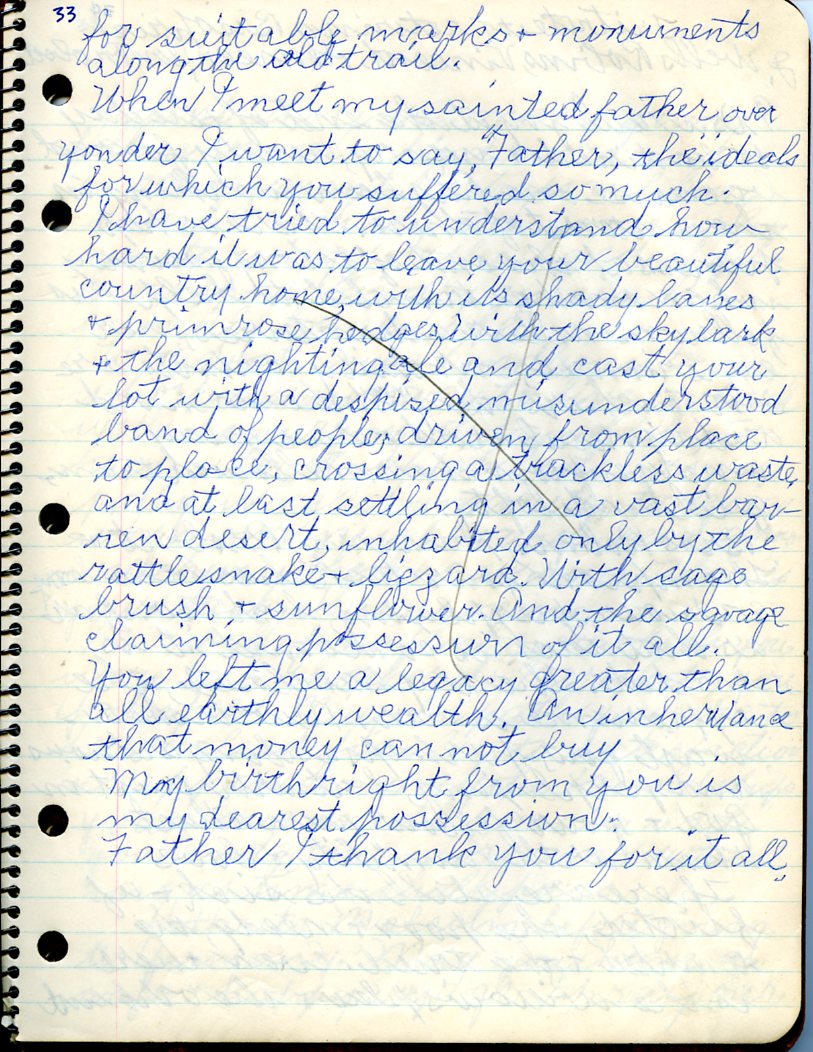 33
for suitable marks + monuments
along the old trail.
When I meet my sainted father over
yonder I want to say, "Father, the ideals
for which you suffered so much.
I have tried to understand how
hard it was to leave your beautiful
country home, with its shady lanes
+ primrose hedges with the skylark
+ the nightingale and cast your
lot with a despized misunderstood
band of people, driven from place
to place, crossing a trackless waste,
and at last settling in a vast bar-
ren desert, inhabited only by the
rattlesnake + lizzard. With sage
brush + sunflower. And the savage
claiming possession of it all.
You left me a legacy greater than
all earthly wealth. An inheritance
that money can not buy
My birthright from you is
my dearest possession.
Father I thank you for it all."